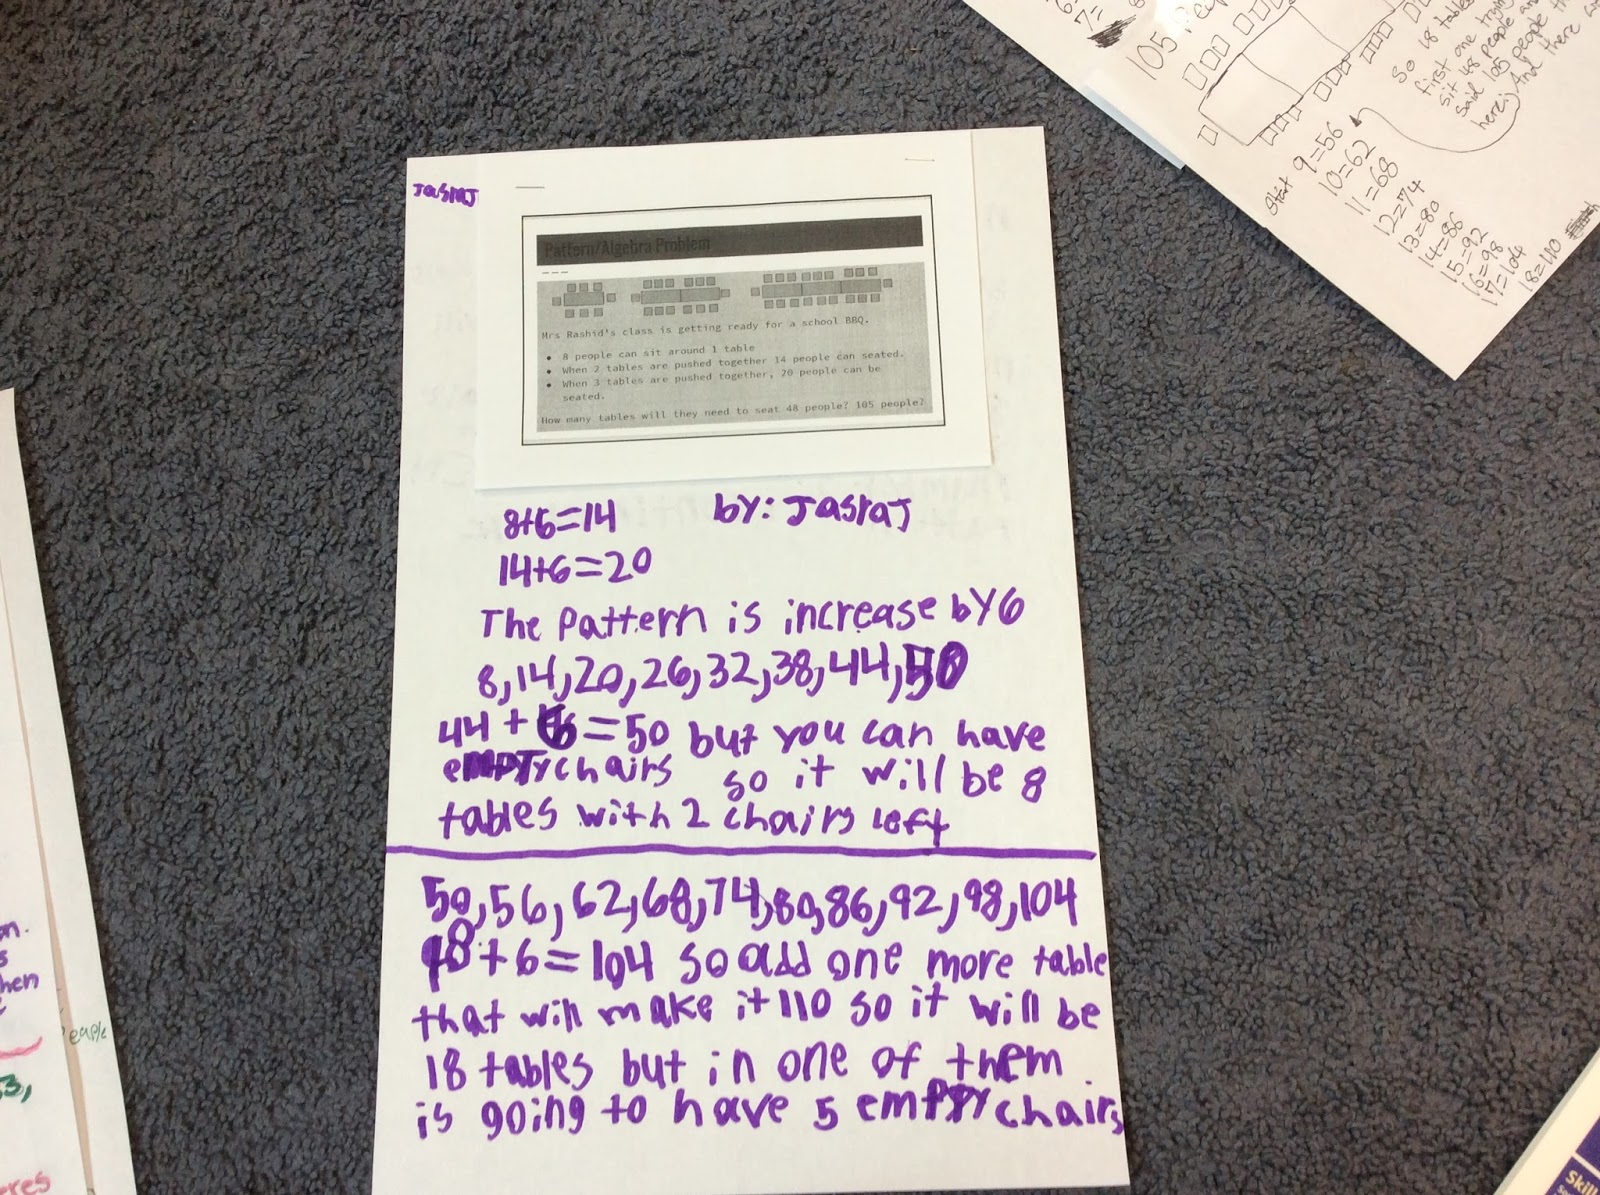 Jasraj
Pattern/Algebra Problem
Mrs Rashid's class is getting ready for a school BBQ.
• 8 people can sit around 1 table
• When 2 tables are pushed together 14 people can seated.
• When 3 tables are pushed together, 20 people can be
seated.
How many tables will they need to seat 48 people? 105 people?
8+6=14 by: Jasraj
14+6=20
The Pattern is increase by 6
8,14,20,26,32,38,44,50
44+6=50 but you can have
empty chairs so it will be 8
tables with 2 chairs left
50,56,62,68,74,80,86,92,98,104
+6=104 so add one more table
that will make it 110 so it will be
18 tables but in one of them
is going to have 5 empty chairs
7=
105
So 18 tables
first one
sit 48 people an
said 105 people
here; And there
Start 9=56
10=62
11=68
12=74
13=80
14=86
15=92
16=98
17=104
18=110
hen
people
53,
eres
Skill